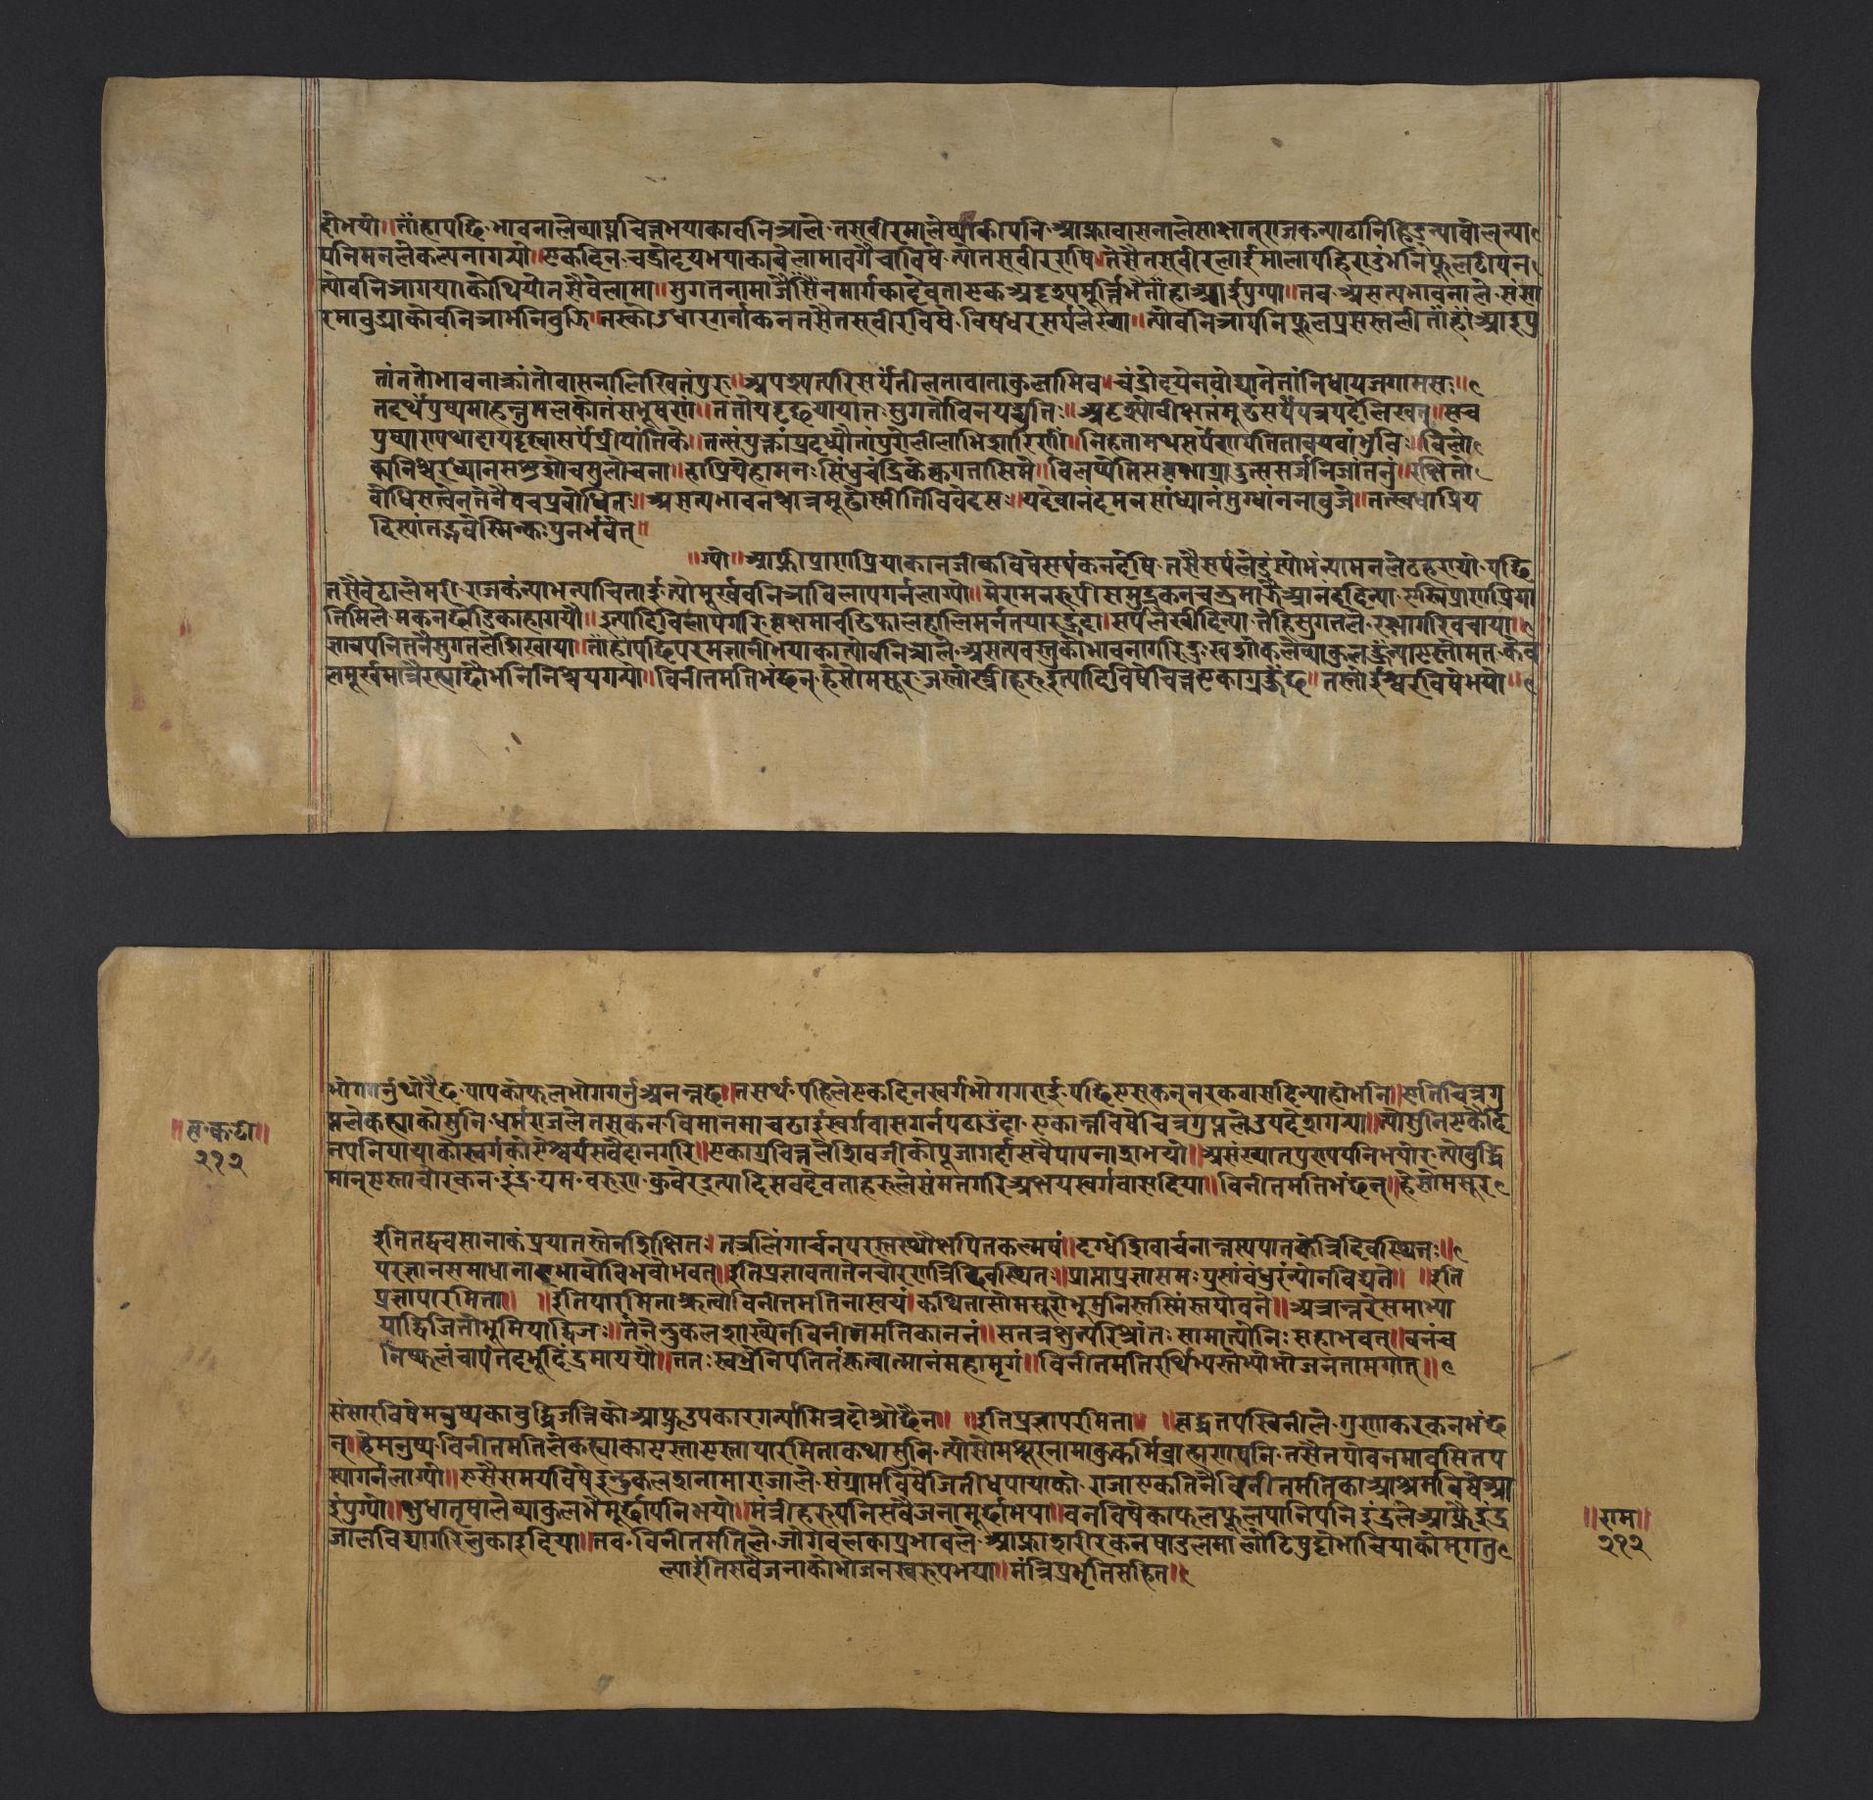 होभयो॥ ताँहापछि भावनालेव्याप्तचित्तभयाकावनिञाले तसवीरमालेष्याकीपनि आफ्नावासनालेसाक्षात्राजकन्याठानिहिडन्यावोलन्या
पनिमनलेकल्पनागऱ्यो॥ एकदिन चंद्रोदयभयाकावेलामावगैचाविषे त्योतसवीरराषि तेसैतसवीरलाईमालापहिराउंभनिफूलटीपन
त्योवनिञागयाकोथियोतसैवेलामा॥ सुगतनामाजैसिनमार्गकादेवताएक अदृश्यमूर्त्तिभैताँहाआईपुग्या॥ तव असत्यभावनाले संसा
रमाबुद्याकोवनिञाभनिबुझि तस्कोउधारगर्नाकन तसैतसवीरविषे विषधरसर्पलेख्या॥ त्योवनिञापनिफूलप्रसस्तली ताँहाँआइपु
तांततोभावनाक्रांतोवासनालिखितांपुरः॥ अपश्यत्परिसर्पंतीलतावाताकुलामिव॥ चंद्रोदयेनवोद्यानेतांनिधायजगामसः॥
तदर्थंपुष्पमाहर्त्तुमलकोतंसभूषणां॥ ततोयदृछयायातः सुगतोविनयद्युतिः॥ अदृश्योवीक्ष्यतंमूढंसर्पंपत्रपदेलिखत्॥ सच
पुष्पाण्यथादायदृष्ट्वासर्पंप्रियांतिके॥ तत्संपुक्तांप्रदध्यौतांपुरोलीलाभिशारिणीं॥ निहतामथसर्पेणपतितावयवांभुवि॥ विलो
क्यनिश्चरध्यानसशुशोचसुलोचनां॥ हाप्रियेहामनःसिंधुचंद्रिकेक्वगतासिमे॥ विलप्येतिसवृक्षाग्रादुत्ससर्जनिजांतनुं॥ रक्षितो
वोधिसत्वेनतेनैवचप्रवोधितः॥ असत्यभावनश्चात्रमूढोस्मीतिविवेदसः॥ यदेवानंदमनसांध्यानंमुग्धांननावुजे॥ तत्स्वधाप्रिय
दिस्यांतद्भवेस्मिन्कःपुनर्भवेत्॥
ग्यो॥ आफ्नीप्राणप्रियाकानजीकविषेसर्पकनदेषि तसैसर्पलेडस्योभंन्यामनलेठहरायो पछि
तसैवेटालेमरी राजकंन्याभन्याचिताई त्योमूर्खवनिञाविलापगर्नलाग्यो॥ मेरामनरूपीसमुद्रकनचन्द्रमाझैआनंददिन्या एस्तिप्राणप्रिया
तिमिले मकनछोडिकाहागयौ॥ इत्यादिविलापगरि वृक्षमाचढिफालहालिमर्नतयारहुंदा सर्पलेखीदिन्या तेहिसुगतले रक्षागरिवचाया॥
ज्ञानपनितेनैसुगतलेशिखाया॥ ताँहापछिपरमज्ञानीभयाकात्योवनिञाले असत्यवस्तुकोभावनागरिदुःखशोकलेव्याकुलहुंन्याएस्तोमत केव
लमूर्खमात्रैरह्याछौभनिनिश्चयगऱ्यो॥ विनीतमतिभंछन् हेसोमसूर जस्तोस्त्रीहरुइत्यादिविषेचित्तएकाग्रहुंछ॥ तस्तोईश्वरविषेभयो॥
॥त्र॰कदी॥
२१२
भोगगर्नुथोरैछ पापकोफलभोगगर्नुअनन्तछ॥ तसर्थ पहिलेएकदिनस्वर्गभोगगराई पछिएसकनन्नरकवासदिन्याहोभनि॥ एतिचित्रगु
प्तलेकह्याकोसुनि धर्मराजले तसकन विमानमाचठाईस्वर्गवासगर्नपठाउँदा एकान्तविषेचित्रगुप्तलेउपदेशगऱ्या॥ त्योसुनिएकैदि
नपनिपायाकोस्वर्गकोऐश्वर्यसवैदानगरि॥ एकाग्रचित्तलेशिवजीकोपूजागर्दासवैपापनाशभयो॥ असंख्यातपुण्यपनिभयोर त्योवुद्धि
मान्एस्ताचोरकन इंद्र यम वरुण कुवेरइत्यादिसवदेवताहरुलेसंमतगरिअक्षयस्वर्गवासदिया॥ विनीतमतिभंछन्॥ हेसोमसूर
इतितद्वचसानाकंप्रयातस्तेनशिक्षितः॥ तत्रलिंगार्चनपरस्तस्थौक्षपितकल्मषं॥ दृग्धेशिवार्चनान्तस्यपातकेत्रिदिवस्थितः॥
परज्ञानसमाधानाद्भुभावोविभवोभवत्॥ इतिप्रज्ञावतातेनचोरेणत्रिदिवस्थितः॥ प्राप्ताप्रज्ञासमः पुसांवंधुरंन्योनविद्यते॥ ॥इति
प्रज्ञापारमिता॥ ॥इतियारमिताःश्रुत्वाविनीतमतिनास्वयं॥ कथितासोमसूरोभूमुनिस्तस्मिंस्तपोवने॥ अत्रान्तरेसमाभ्या
याद्विजितोभूमियाद्विजः॥ तेनेन्दुकलशाख्येनविनीतमतिकाननं॥ सतत्रक्षुत्परिश्रांतः सामात्योनिःसहाभवत्॥ वनंच
निष्फलंचापंतदभूदिंद्रमायया॥ ततःस्वभ्रेनिपतितंकृत्वात्मानंमहामृगं॥ विनीतमतिरर्थिभ्यस्तेभ्योभोजनतामगात्॥
संसारविषेमनुष्यकाबुद्धिजत्तिकोआफ्नुउपकारगर्न्यामित्रदोश्रोछैन॥ ॥इतिप्रज्ञापरमिता॥ ॥वृद्धतपस्विनीले गुणाकरकनभंछ
न्॥ हेमनुष्य विनीतमतिलेकह्याकाएस्ताएस्तापारमिताकथासुनि त्योसोमशूरनामाकुकर्मिव्राह्मणपनि तसैतपोवनमावसितप
स्यागर्नलाग्यो॥ एसैसमयविषेइन्दुकलशनामाराजाले संग्रामविषेजितीधपायाको राजाएकतिनैविनीतमतिकाआश्रमविषेआ
ईपुग्यो॥ क्षुधातृषालेव्याकुलभैमुर्छापनिभयो॥ मंत्रीहरुपनिसंवैजनामुर्छाभया॥ वनविषेकाफलफूलपानिपनि इंद्रलेआफ्नैइंद्र
जालविद्यागरिलुकाइदिया॥ तव विनीतमतिले जोगवलकाप्रभावले आफ्नाशरीरकनषाडलमालोटिपुट्टोभाचियाकोमृगतु
ल्याईतिसवैजनाकोभोजनस्वरुपभया॥ मंत्रिप्रभृतिसहित॥
॥राम॥
२१२